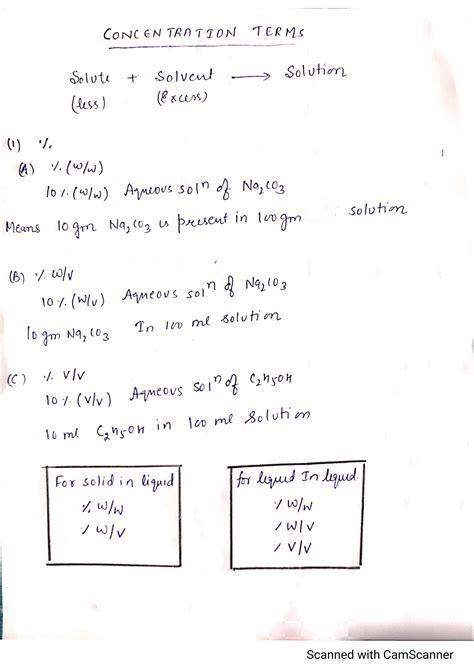 CONCENTRATION TERMS
Solute + Solvent → Solution
(less) (Excess)
(1) %
(A) % (w/w)
10 % (w/w) Aqueous solⁿ of Na₂CO₃
Means 10 gm Na₂CO₃ is present in 100 gm solution
(B) % W/V
10 % (W/V) Aqueous solⁿ of Na₂CO₃
10 gm Na₂CO₃ In 100 ml solution
(C) % V/V
10 % (V/V) Aqueous solⁿ of C₂H₅OH
10 ml C₂H₅OH in 100 ml Solution
For solid in liquid
% W/W
% W/V
for liquid In liquid.
% W/W
% W/V
% V/V
Scanned with CamScanner